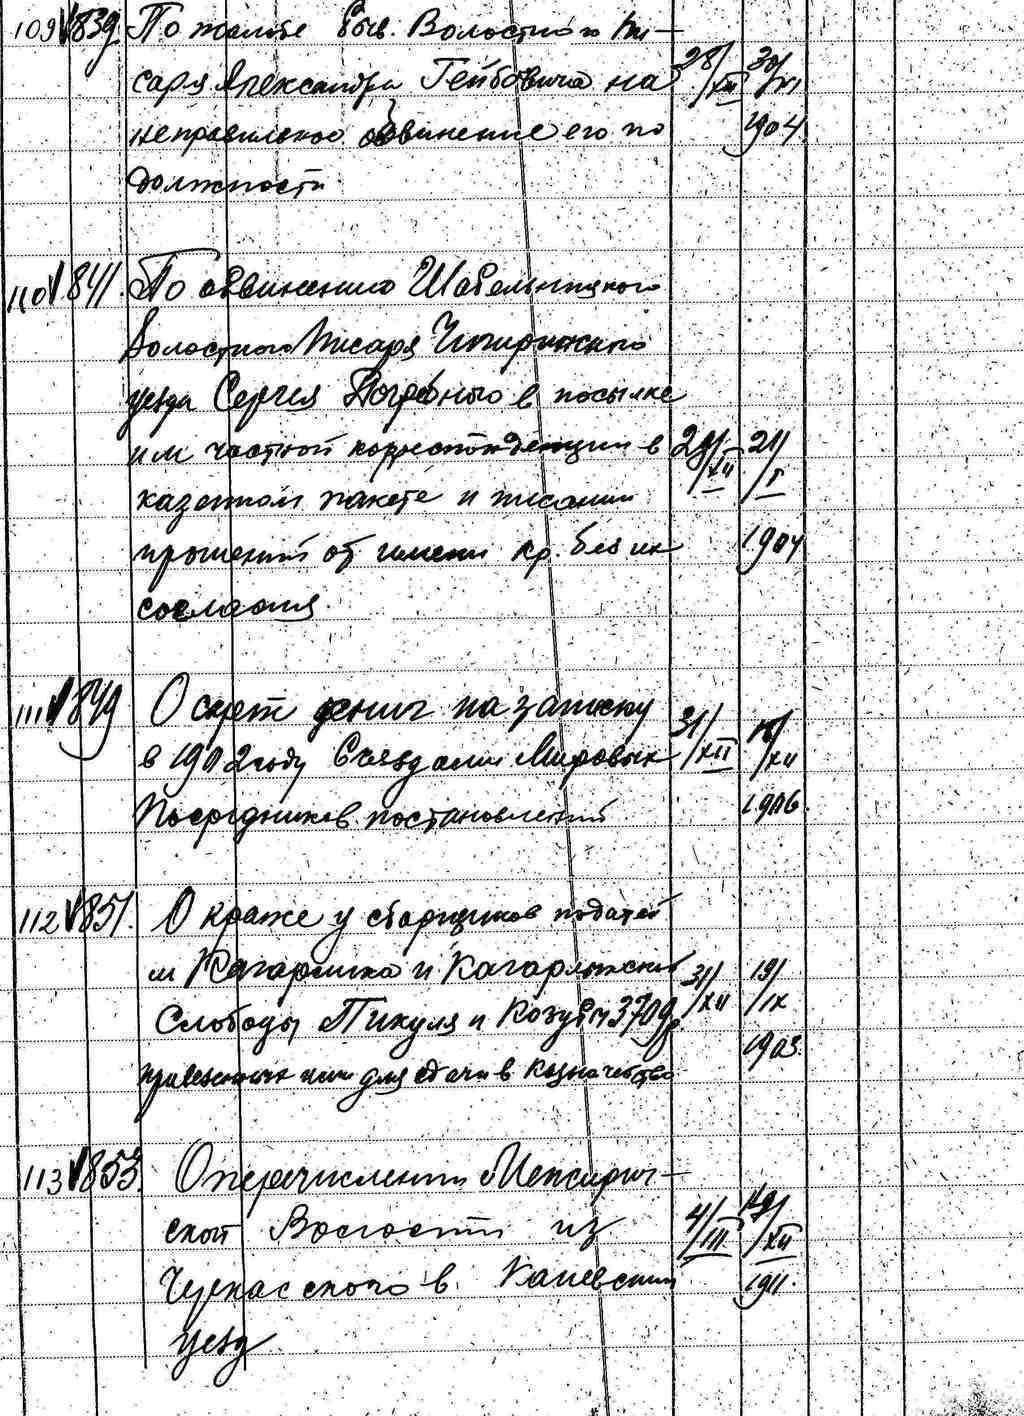 109 839 По жалобе быв. Волостного Пи-
саря Александра Гейбовича на 28/XII 30/XI
неправильное обвинение его по 1904.
должности
110 841. По обвинению Шабельницкого
Волостного Писаря Чигиринского
уезда Сергея Погребного в посылке
им частной корреспонденции в 29/XII 21/I
казенном пакете и писании
прошений от имени кр. без их 1904
согласия.
111 849 О смете денег на записку
в 1902 году Съездами Мировых 31/XII /XII
Посредников постановлений 1906.
112 851. О краже у сборщиков податей
м Кагарлыка и Кагарлыкской 31/XII 19/IX
Слободы Пикуля и Козуб 370 р 1903.
привезенных ими для сдачи в Казначейство
113 853. О перечислении Межирич-
ской Волости из 4/III 19/XII
Черкасского в Каневский 1911.
уезд